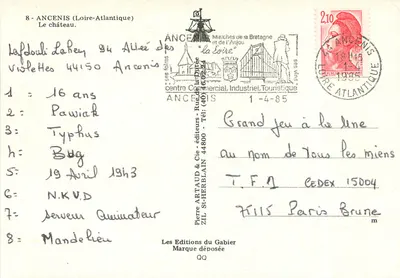 8 - ANCENIS (Loire-Atlantique)
Le château.
94 Allée des
violettes 44150 Ancenis
1 = 16 ans
2 = Pawiak
3 = Typhus
4 = Bug
5 = 19 Avril 1943
6 = N.K.V.D
7 = Serveur Animateur
8 = Mandelieu
Pierre ARTAUD & Cie - éditeurs - Rue de
ZIL ST-HERBLAIN 44800 - Tél. (40) 46.
Les Editions du Gabier
Marque déposée
ANCENIS
Marches de la Bretagne
et de l'Anjou
"la Loire"
centre Commercial, Industriel, Touristique
ANCENIS 1-4-85
2,10
44 ANCENIS
1-4
1985
LOIRE ATLANTIQUE
Grand jeu à la Une
au nom de tous les miens
T.F.1 CEDEX 15004
75115 Paris Brune
m